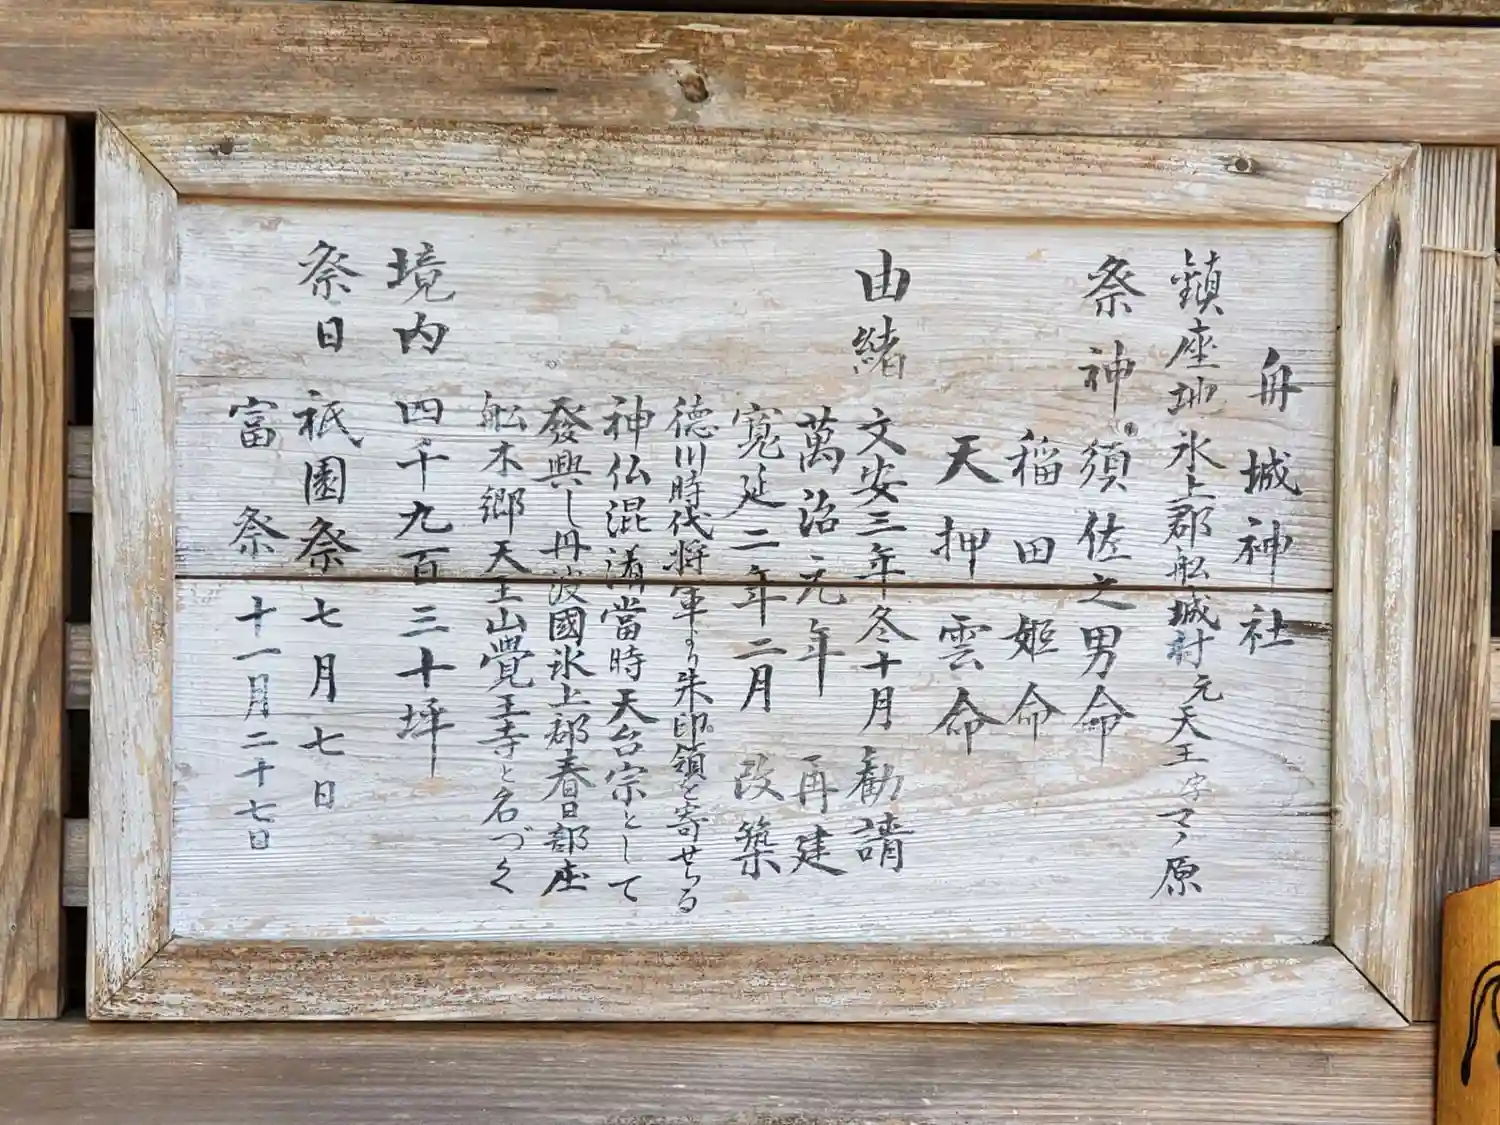 舟城神社
鎮座地 氷上郡舩城村 元天王 字マノ原
祭神 須佐之男命
稲田姫命
天押雲命
由緒 文安三年冬十月勧請
萬治元年 再建
寛延二年二月 改築
徳川時代将軍より朱印領を寄せらる
神仏混淆當時天台宗として
發興し丹波國氷上郡春日部庄
舩木郷天王山覺王寺と名づく
境内 四千九百三十坪
祭日 祇園祭 七月七日
富祭 十一月二十七日